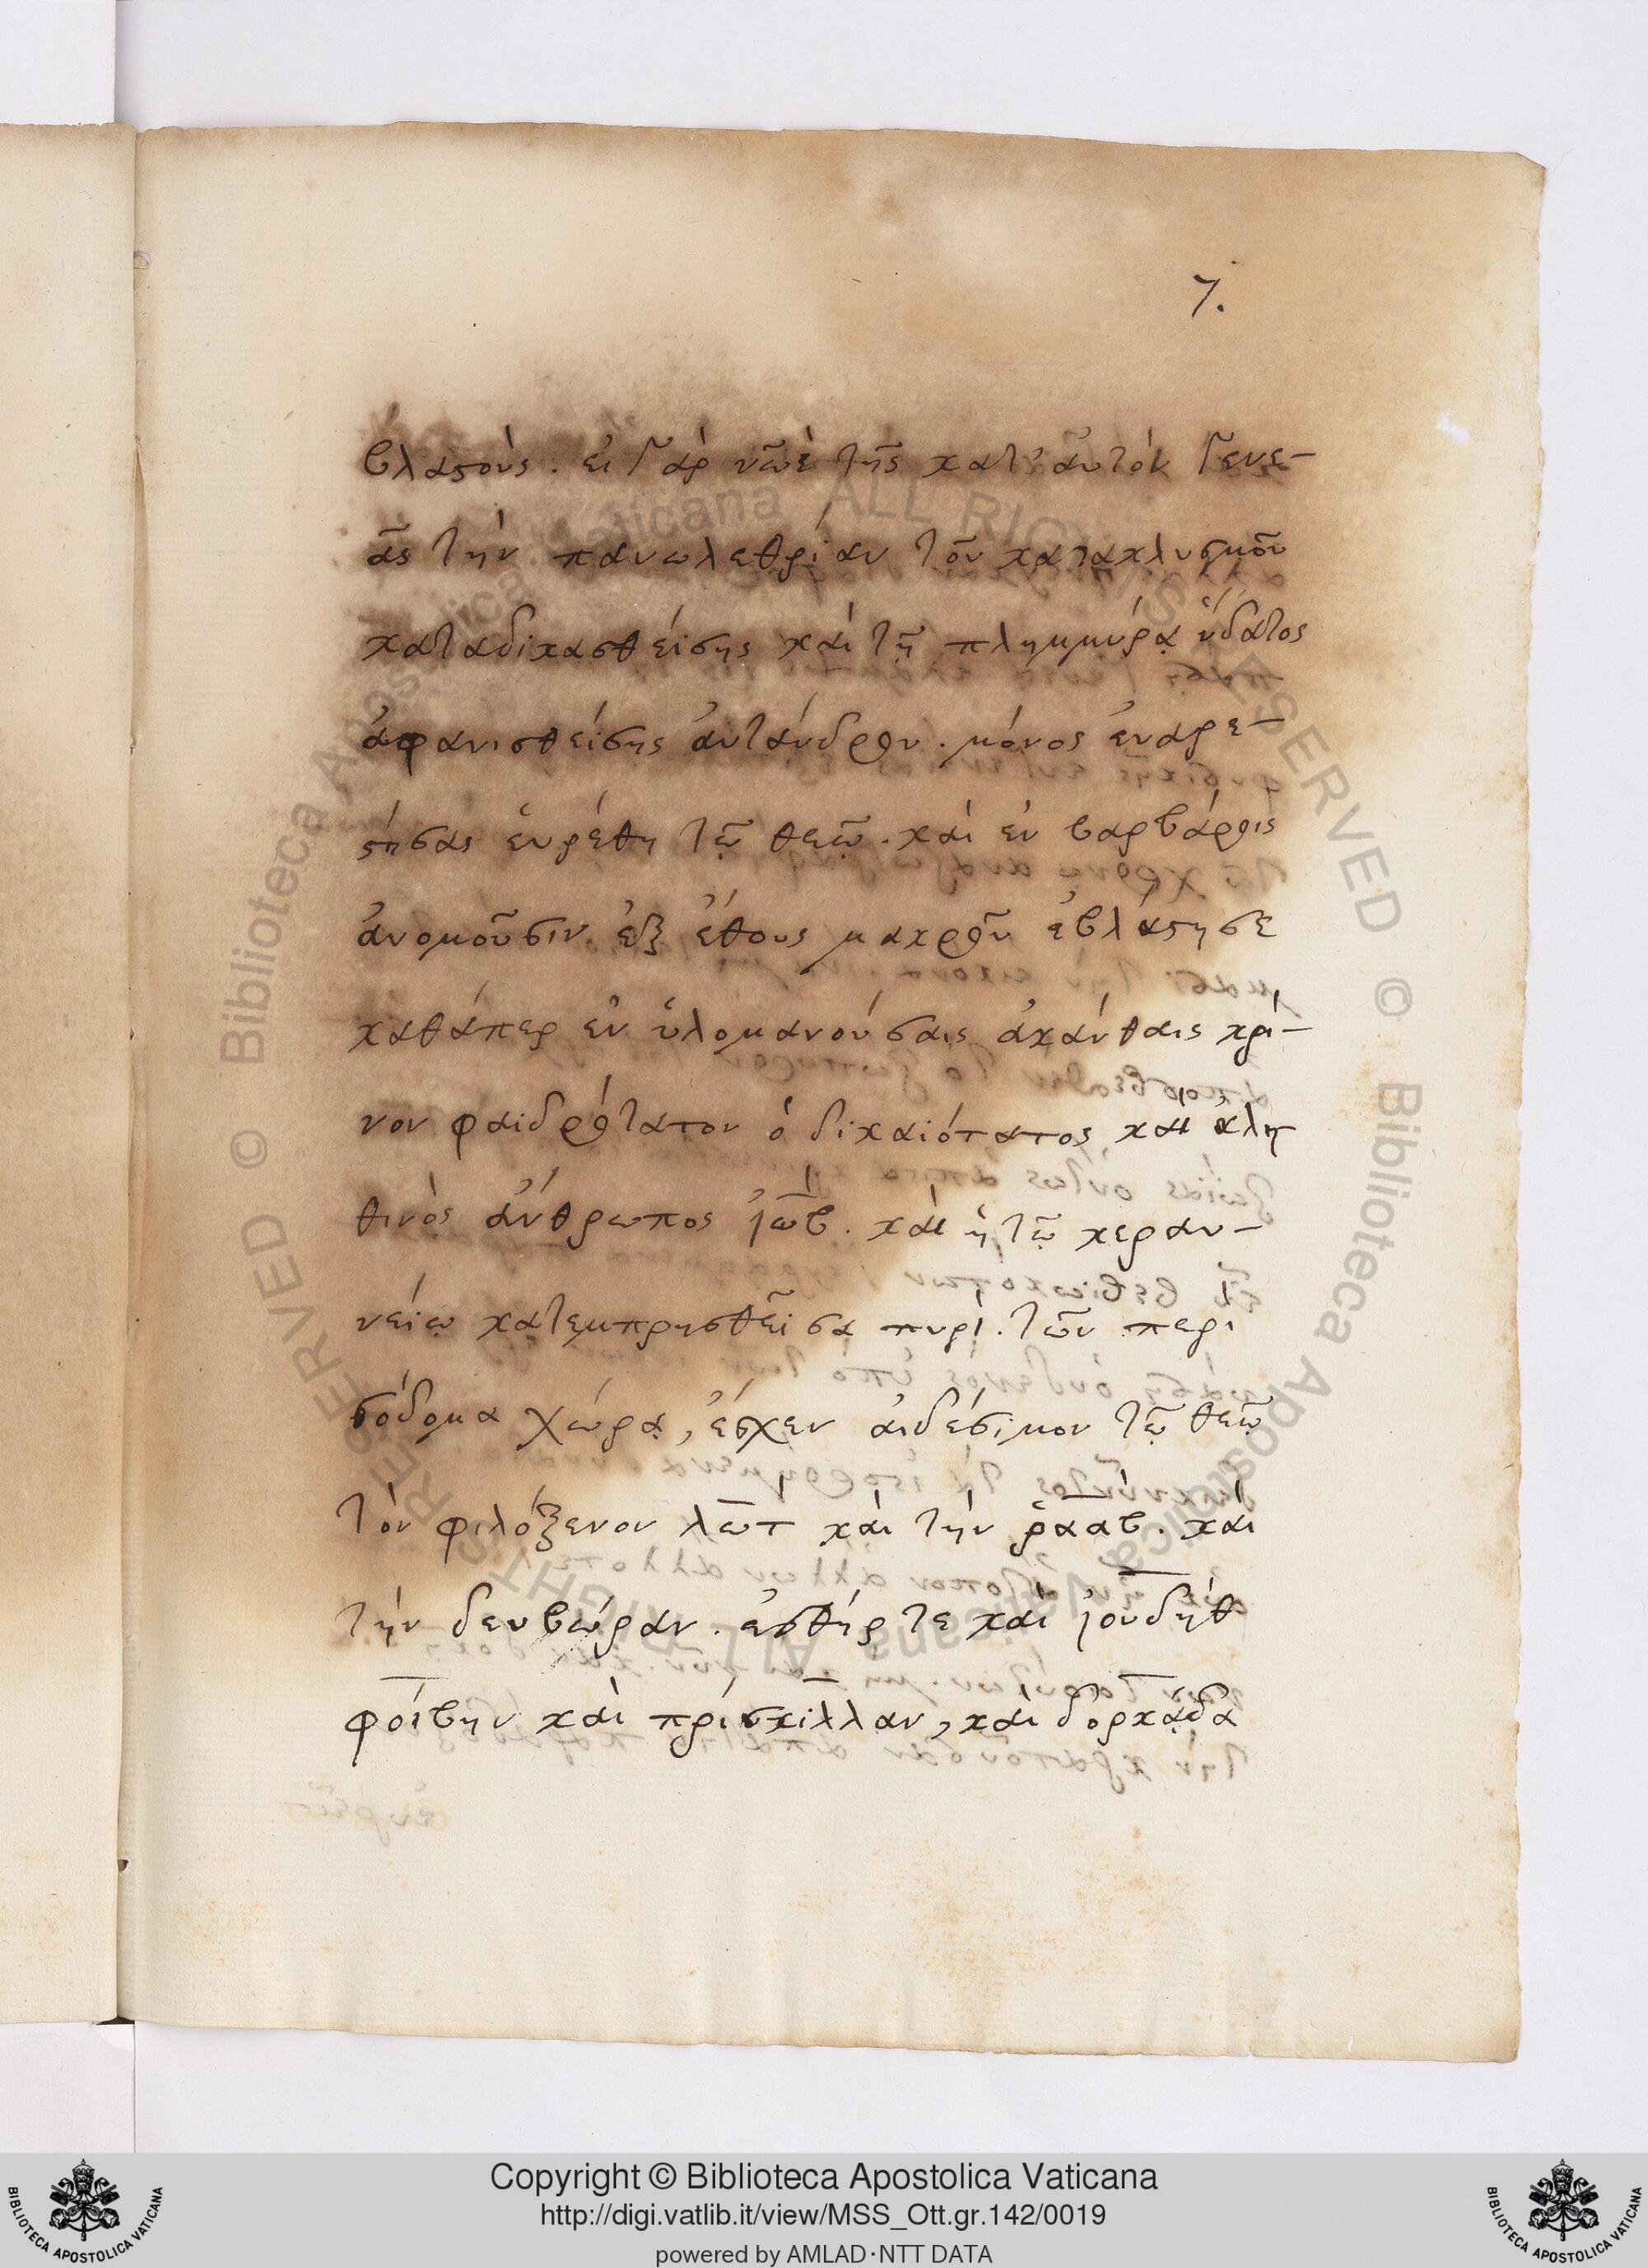 7.
βλαστοὺς. εἰ γὰρ νῶὲ τῆς κατ' ἀυτὸν γενε-
ᾶς τὴν πανωλεθρίαν τοῦ κατακλυσμοῦ
καταδικασθείσης καὶ τῇ πλημμύρᾳ ὕδατος
ἀφανισθείσης ἀυτάνδρου. μόνος ἐυαρε-
στήσας ἑυρέθη τῷ θεῷ. καὶ ἐν βαρβάροις
ἀνομοῦσιν ἐξ ἔθους μακροῦ ἐβλάστησε
καθάπερ ἐν ὑλομανούσαις ἀκάνθαις κρί-
νον φαιδρότατον ὁ δικαιότατος καὶ ἀλη
θινὸς ἄνθρωπος ἰὼβ. καὶ ἡ τῷ κεραυ-
νείῳ κατεμπρησθεῖσα πυρὶ. τῶν περὶ
σόδομα χώρᾳ, ἔσχεν ἀιδέσιμον τῷ θεῷ
τὸν φιλόξενον λῶτ καὶ τὴν ῥααβ. καὶ
τὴν δευβώραν. ἐσθήρ τε καὶ ἰουδὴθ
φοίβην καὶ πρίσκιλλαν, καὶ δορκάδα
Copyright © Biblioteca Apostolica Vaticana
http://digi.vatlib.it/view/MSS_Ott.gr.142/0019
powered by AMLAD·NTT DATA
BIBLIOTECA APOSTOLICA VATICANA
BIBLIOTECA APOSTOLICA VATICANA
© Biblioteca Apostolica Vaticana ALL RIGHTS RESERVED
© Biblioteca Apostolica Vaticana ALL RIGHTS RESERVED